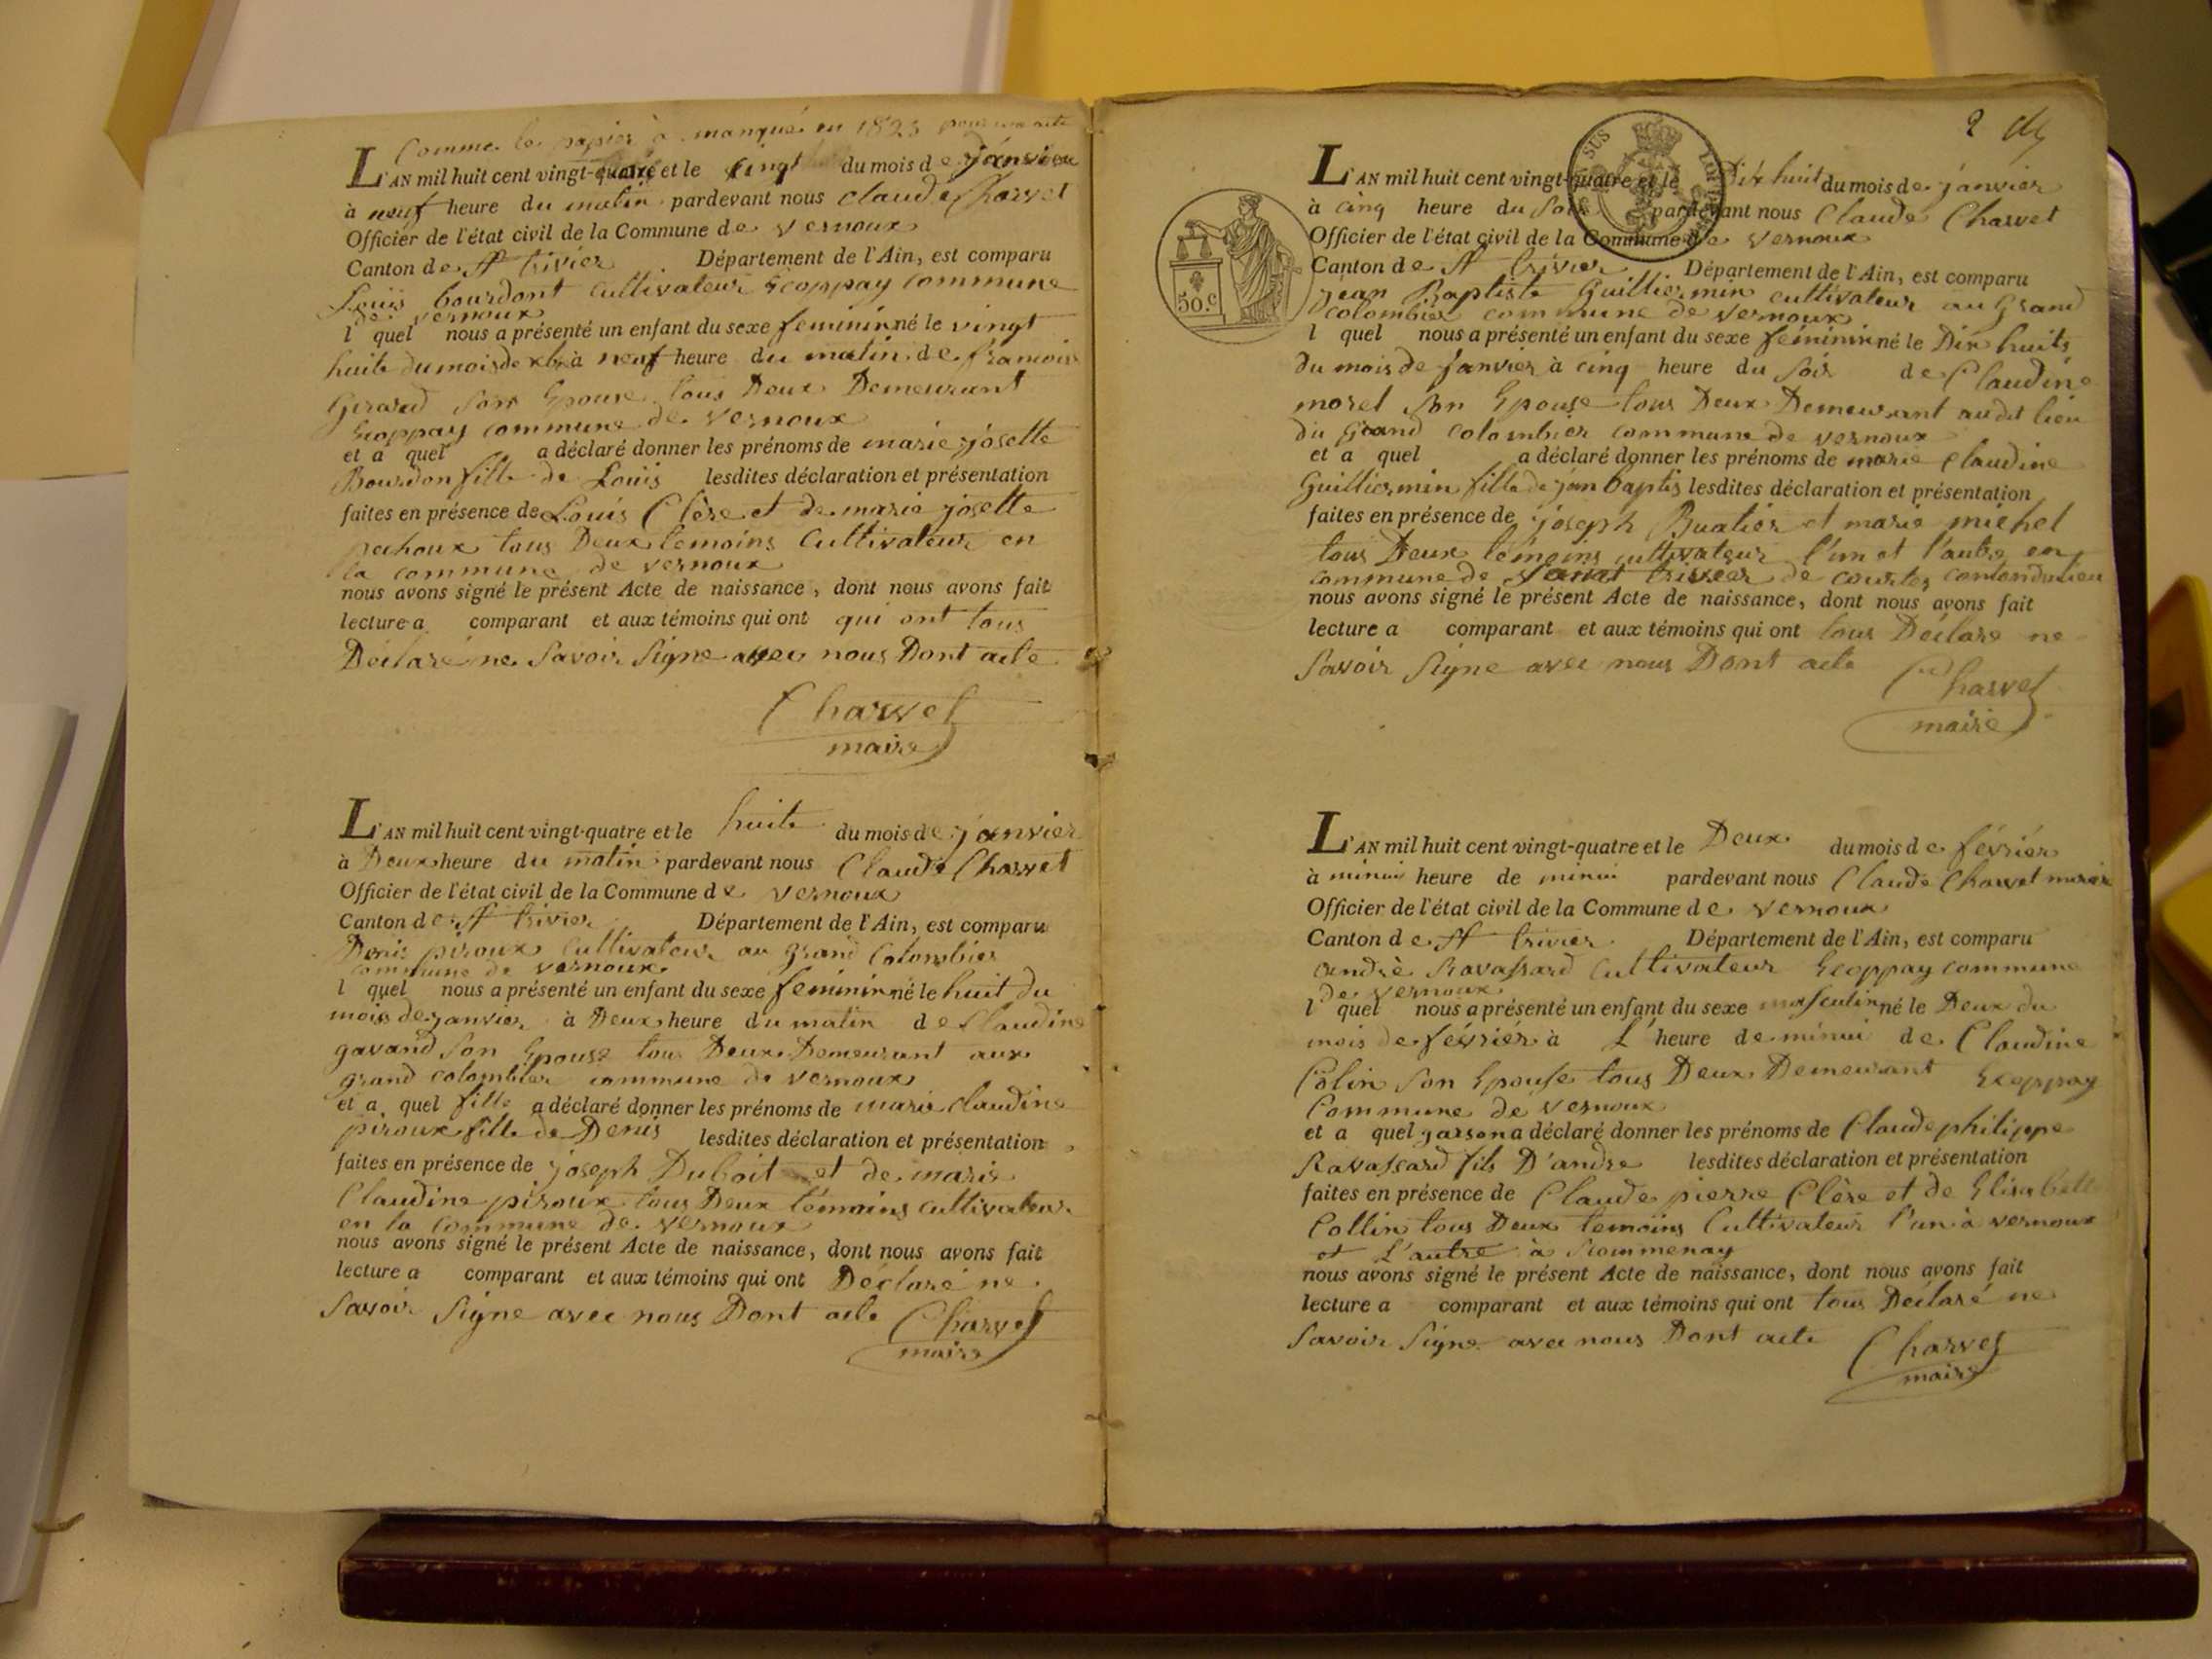 Comme le papier à manqué en 1823 pour un acte
L'AN mil huit cent vingt-quatre et le vingt du mois de janvier
à neuf heure du matin pardevant nous Claude Charvet
Officier de l'état civil de la Commune de vernoux
Canton de St trivier Département de l'Ain, est comparu
Louis bourdont cultivateur Ecoppay commune
de vernoux
l quel nous a présenté un enfant du sexe feminin né le vingt
huite du mois de xbre à neuf heure du matin de francoise
Girard son Epouse tous Deux Demeurant
Ecoppay commune de vernoux
et a quel a déclaré donner les prénoms de marie josette
Bourdon fille de Louis lesdites déclaration et présentation
faites en présence de Louis Clère et de marie josette
pachoux tous Deux temoins Cultivateur en
la commune de vernoux
nous avons signé le présent Acte de naissance, dont nous avons fait
lecture a comparant et aux témoins qui ont qui ont tous
Déclaré ne Savoir Signe avec nous Dont acte
Charvet
maire
L'AN mil huit cent vingt-quatre et le huite du mois de janvier
à Deux heure du matin pardevant nous Claude Charvet
Officier de l'état civil de la Commune de vernoux
Canton de St trivier Département de l'Ain, est comparu
Denis piroux Cultivateur au grand Colombier
commune de vernoux
l quel nous a présenté un enfant du sexe feminin né le huit du
mois de janvier à Deux heure du matin de Claudine
gavand son Epouse tous Deux Demeurant aux
grand colombier commune de vernoux
et a quel fille a déclaré donner les prénoms de marie claudine
piroux fille de Denis lesdites déclaration et présentation
faites en présence de joseph Duboit et de marie
Claudine piroux tous Deux témoins cultivateur
en la commune de vernoux
nous avons signé le présent Acte de naissance, dont nous avons fait
lecture a comparant et aux témoins qui ont Déclaré ne
Savoir Signe avec nous Dont acte Charvet
maire
2
L'AN mil huit cent vingt-quatre et le Dix huit du mois de janvier
à cinq heure du Soir pardevant nous Claude Charvet
Officier de l'état civil de la Commune de vernoux
Canton de St trivier Département de l'Ain, est comparu
50.c
jean Baptiste Guilliermin cultivateur au grand
colombier commune de vernoux
l quel nous a présenté un enfant du sexe féminin né le Dix huits
du mois de janvier à cinq heure du Soir de Claudine
morel son Epouse tous Deux Demeurant audit lieu
du grand colombier commune de vernoux
et a quel a déclaré donner les prénoms de marie claudine
Guilliermin fille de jean baptis lesdites déclaration et présentation
faites en présence de joseph Buatier et marie michel
tous Deux témoins cultivateur l'un et l'autre en
commune de Saint trivier de courtes canton dudieu
nous avons signé le présent Acte de naissance, dont nous avons fait
lecture a comparant et aux témoins qui ont tous Déclare ne
Savoir Signe avec nous Dont acte
Charvet
maire
L'AN mil huit cent vingt-quatre et le Deux du mois de février
à minui heure de minui pardevant nous Claude Charvet maire
Officier de l'état civil de la Commune de vernoux
Canton de St trivier Département de l'Ain, est comparu
andrè Ravassard Cultivateur Ecoppay commune
de vernoux
l quel nous a présenté un enfant du sexe masculin né le Deux du
mois de février à L'heure de minui de Claudine
Colin son Epouse tous Deux Demeurant Ecoppay
Commune de vernoux
et a quel garson a déclaré donner les prénoms de Claude philippe
Ravassard fils D'andre lesdites déclaration et présentation
faites en présence de Claude pierre Clère et de Elisabett
Collin tous Deux temoins Cultivateur l'un à vernoux
et L'autre à Rommenay
nous avons signé le présent Acte de naissance, dont nous avons fait
lecture a comparant et aux témoins qui ont tous Déclaré ne
Savoir Signe avec nous Dont acte Charvet
maire